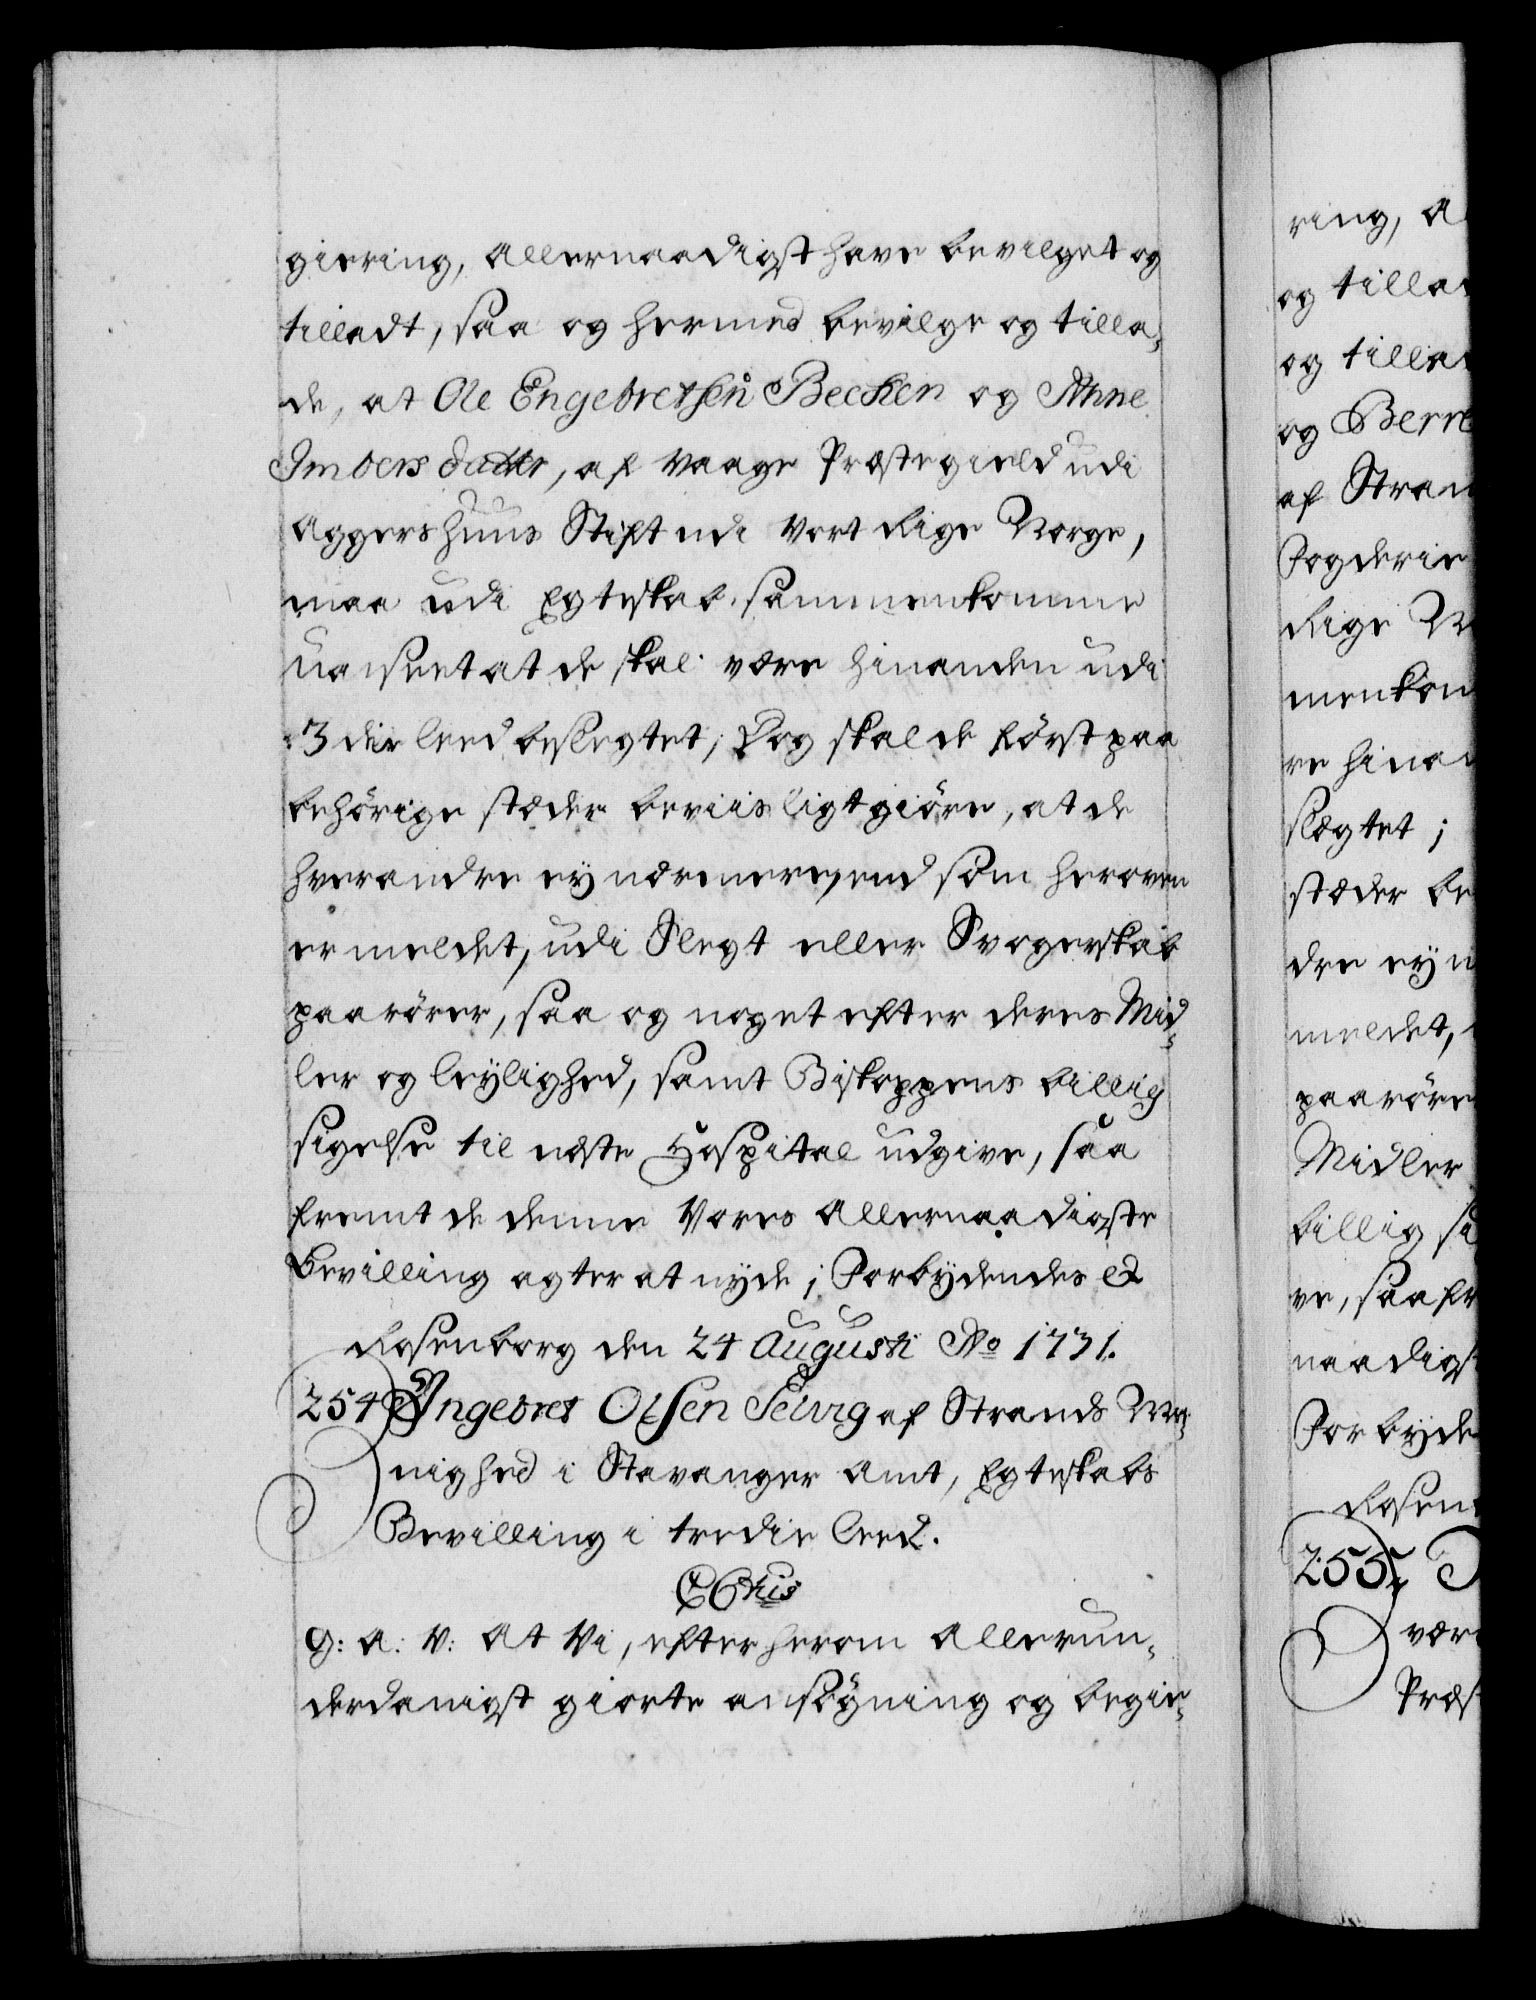 giering, allernaadigst have bevilget og
tilladt, saa og hermed bevilge og tilla-
de, at Ole Engebretsen Becken og Anne
Imbersdatter, af Vaage Præstegield udi
Aggershuus Stift udi Vort Rige Norge,
maa udi Egteskab sammenkomme
uanseet at de skal være hinanden udi
3die leed beslegtet; Dog skal de først paa
behörige stæder beviisligtgiöre, at de
hverandre ey nærmere, end som heroven
er meldet, udi Slegt eller Svogerskab
paarörer, saa og noget efter deres Mid-
ler og leylighed, samt Biskoppens billig
sigelse til næste Hospital udgive, saa
fremt de denne Vores allernaadigste
Bevilling agter at nyde; Forbydendes &
Rosenborg den 24 Augusti Ao 1731.
254 Ingebret Olsen af Strands Me-
nighed i Stavanger Amt, Egteskabs
Bevilling i tredie leed.
G: A: V: At Vi, efter herom allerun-
derdanigst giorte ansögning og begie-
ring, A
og tillad
og tillad
og Berre
af Stran
Fogderie
Rige N
menkom
re hinan
slægtet;
stæder be
dre ey n
meldet,
paaröre
Midler
billig si
ve, saafr
naadigs
Forbyde
Rosen
255.
være
Præst